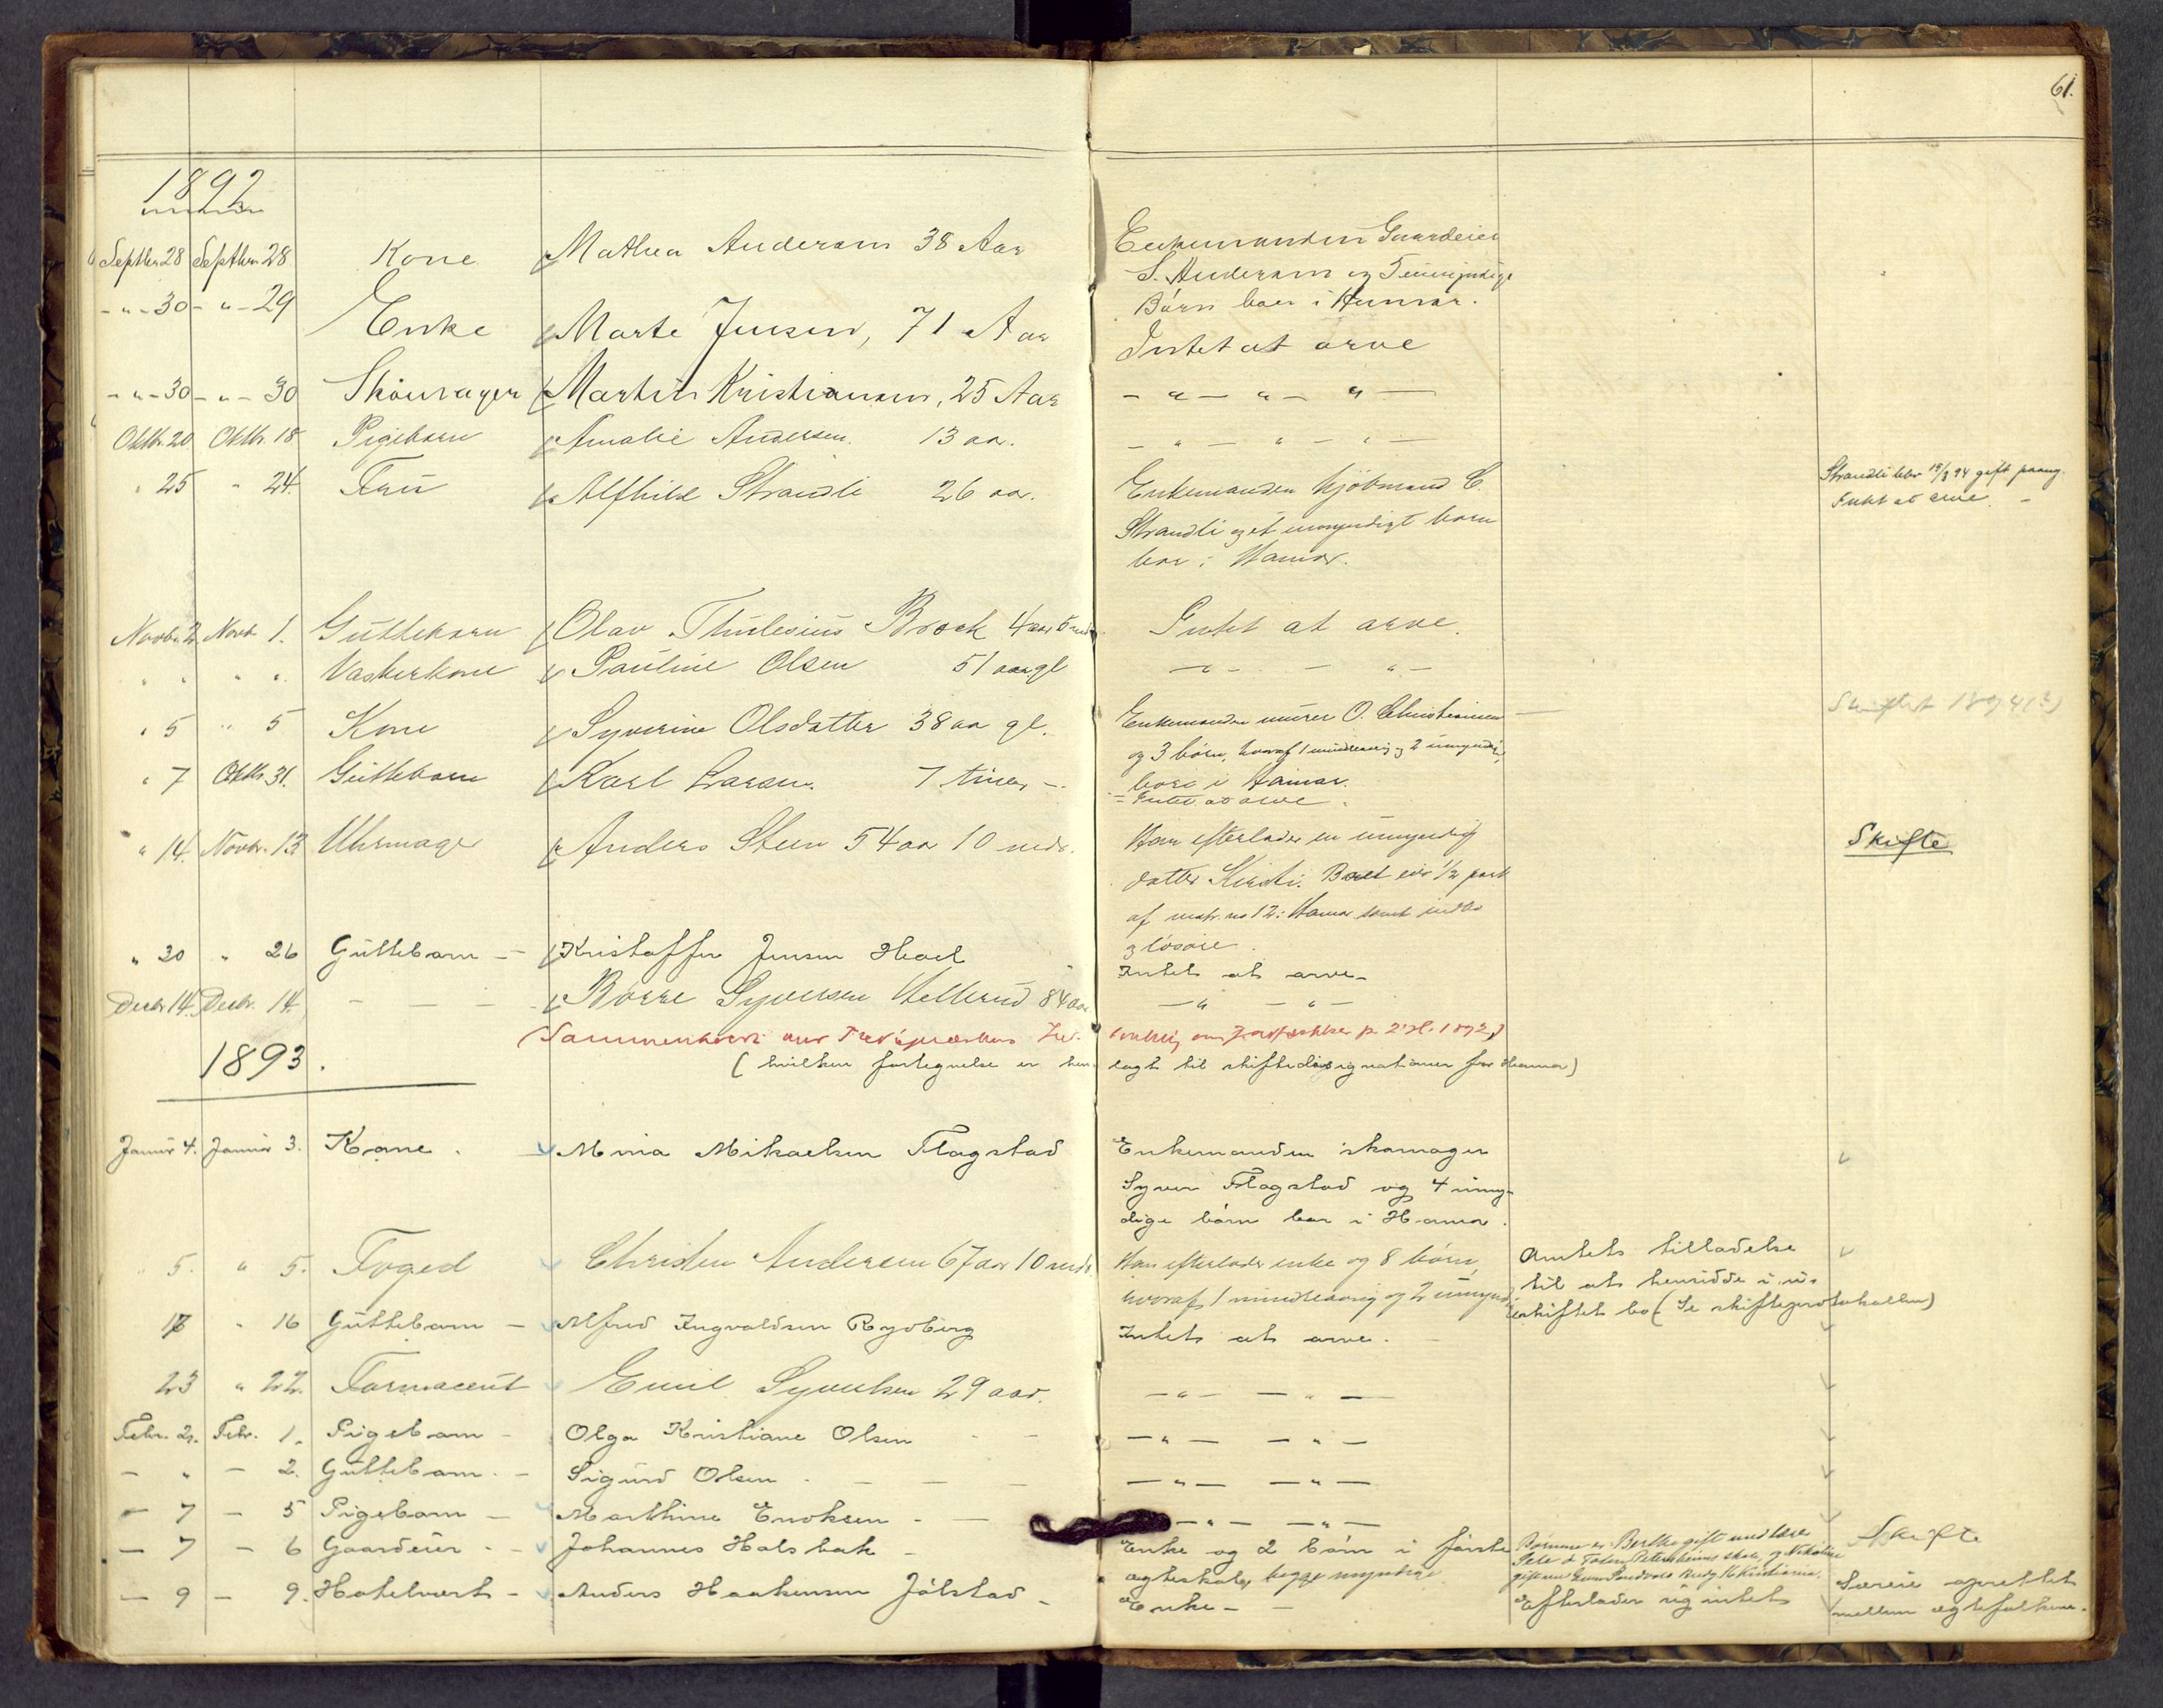 61.
1892
Septbr. 28 Septbr. 28 Kone Mathea Andersen 38 Aar Enkemanden Gaardeier
S. Andersen og 5 umyndige
Børn boer i Hamar.
- " - 30 - " - 29 Enke Marte Jensen, 71 Aar Intet at arve
- " - 30 - " - 30 Skomager Martin Kristiansen, 25 Aar - " - " - " -
Oktbr. 20 Oktbr. 18 Pigebarn Amalie Andersen. 13 aar. - " - " - " -
" 25 " 24. Frü Alfhild Strandli 26 aar. Enkemanden kjøbmand C.
Strandli og et umyndigt barn
bor i Hamar.
Strandli blev 18/3 94 gift paany.
Intet at arve. -
Novbr. 2 Novbr. 1. Guttebarn Olav Thulesius Brock 4 aar 5 mdr. Intet at arve.
" " " " Vaskerkone Pauline Olsen 51 aar gl - " - - " -
" 5 " 5 Kone Syverine Olsdatter 38 aar gl. Enkemanden murer O. Christiansen
og 3 børn, hvoraf 1 mindreaarig og 2 umyndige,
bor i Hamar.
Skiftet 1894 (?)
" 7 Oktbr. 31. Guttebarn Karl Larsen. 7 timer -. = Intet at arve.
" 14. Novbr. 13 Uhrmager Anders Steen 54 aar 10 mdr. Han efterlader en umyndig
datter Kirsti. Boet eier 1/2 part
af matr. no 12 i Hamar samt indbo
og løsøre.
Skifte
" 30 " 26 Guttebarn - Kristoffer Jensen Hoel Intet at arve -
Decbr. 14. Decbr. 14. - - - Børre Syversen Hellerud 84 aar - " - " -
(hvilken fortegnelse er hen- lagt til skiftedesignationer for Hamar)
1893.
Januar 4. Januar 3. Kone. Mina Mikaelsen Flagstad Enkemanden skomager
Syver Flagstad og 4 umyn-
dige børn bor i Hamar.
" 5. " 5. Foged Christen Andersen 67 aar 10 mdr. Han efterlader enke og 8 børn,
hvoraf 1 mindreaarig og 2 umyndige
Amtets tilladelse
til at hensidde i u-
skiftet bo (Se skifteprotokollen)
17 " 16 Guttebarn - Alfred Ingvaldsen Rydberg Intet at arve. -
23 " 22. Farmaceut Emil Syvertsen 29 aar. - " - - " -
Febr. 2. Febr. 1. Pigebarn - Olga Kristiane Olsen - - - " - - " -
- " - 2. Guttebarn. - Sigurd Olsen. - - - " - - " -
- 7 - 5 Pigebarn - Marthine Enoksen - - - " - - " -
- 7 - 6 Gaardeier - Johannes Halsbak - Enke og 2 børn i første
ægteskab, begge myndige
Børnene er: Berthe gift med lærer
Skifte
- 9 - 9. Hotelvert - Anders Haakensen Jølstad - Enke - - Efterlader sig intet
Særeie oprettet
mellem ægtefolkene.